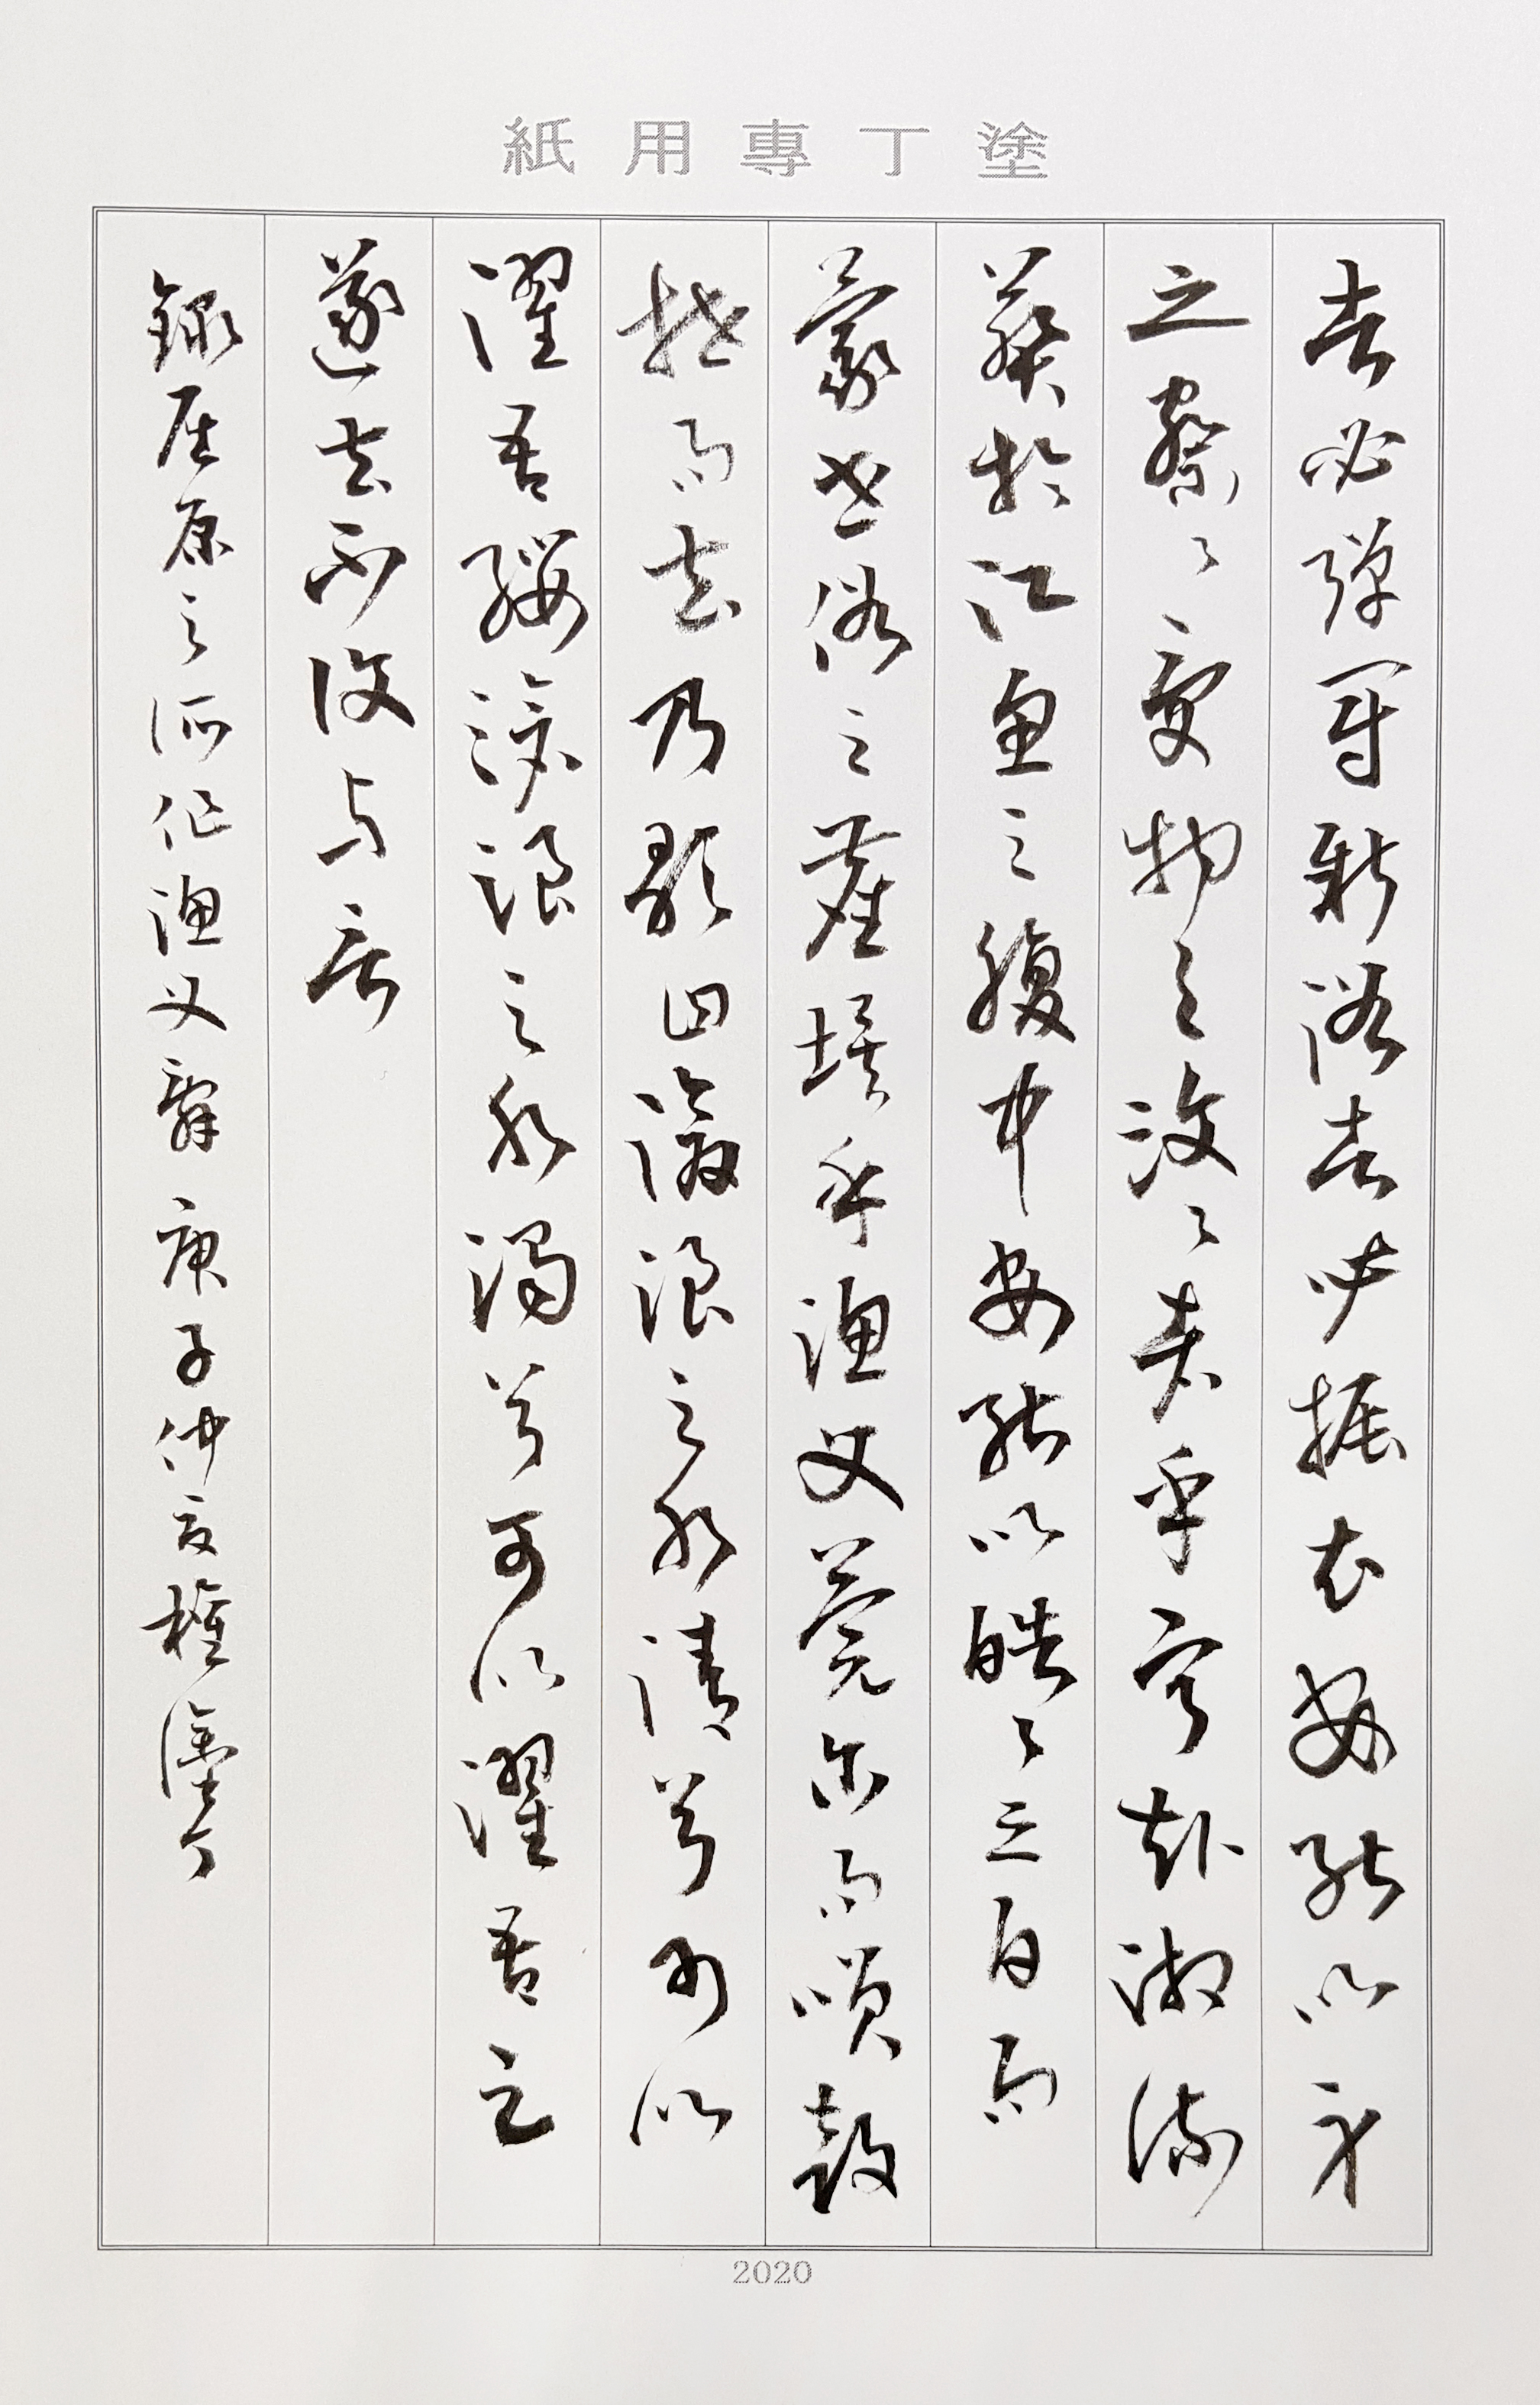 塗丁專用紙
者必彈冠新浴者必振衣安能以身
之察〻受物之汶〻者乎寧赴湘流
葬於江魚之腹中安能以皓〻之白而
蒙世俗之塵埃乎漁父莞尔而笑鼓
枻而去乃歌曰滄浪之水清兮可以
濯吾纓滄浪之水濁兮可以濯吾足
遂去不復与言
錄屈原之所作漁父辭 庚子仲夏權塗丁
2020